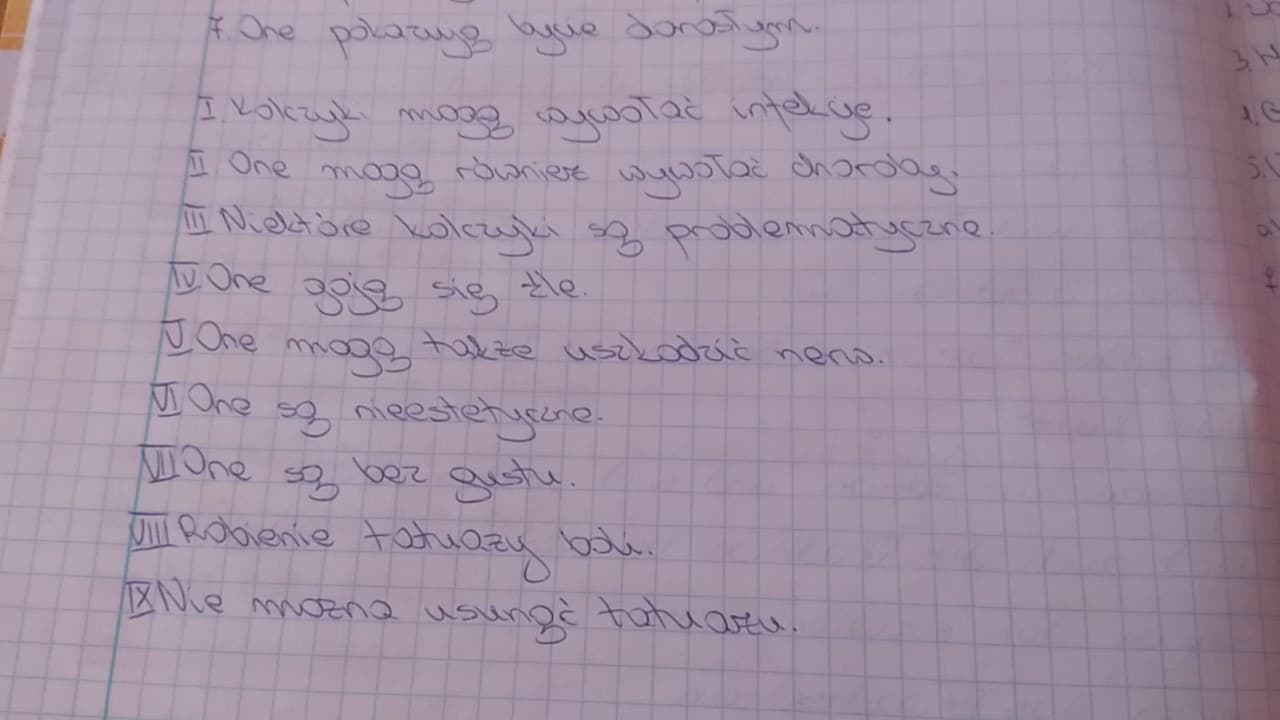 7. One pokazują bycie dorosłym.
I Kolczyki mogą wywołać infekcje.
II One mogą również wywołać choroby.
III Niektóre kolczyki są problematyczne.
IV One goją się źle.
V One mogą także uszkodzić nerw.
VI One są nieestetyczne.
VII One są bez gustu.
VIII Robienie tatuaży boli.
IX Nie można usunąć tatuażu.